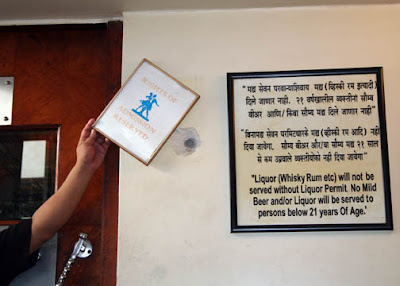 RIGHTS OF
ADMISSION
RESERVED
"मद्य सेवन परवान्याशिवाय मद्य (व्हिस्की रम इत्यादी)
दिले जाणार नाही. २१ वर्षाखालील व्यक्तींना सौम्य
बीअर आणि/ किंवा सौम्य मद्य दिले जाणार नाही."
"बिनापद्य सेवन परमिटधारके मद्य (व्हिस्की रम आदि) नही
दिया जायेगा. सौम्य बीअर और/या सौम्य मद्य २१ साल
से कम उम्रवाले व्यक्तीयोंको नही दिया जायेगा"
"Liquor (Whisky Rum etc) will not be
served without Liquor Permit. No Mild
Beer and/or Liquor will be served to
persons below 21 years Of Age.'